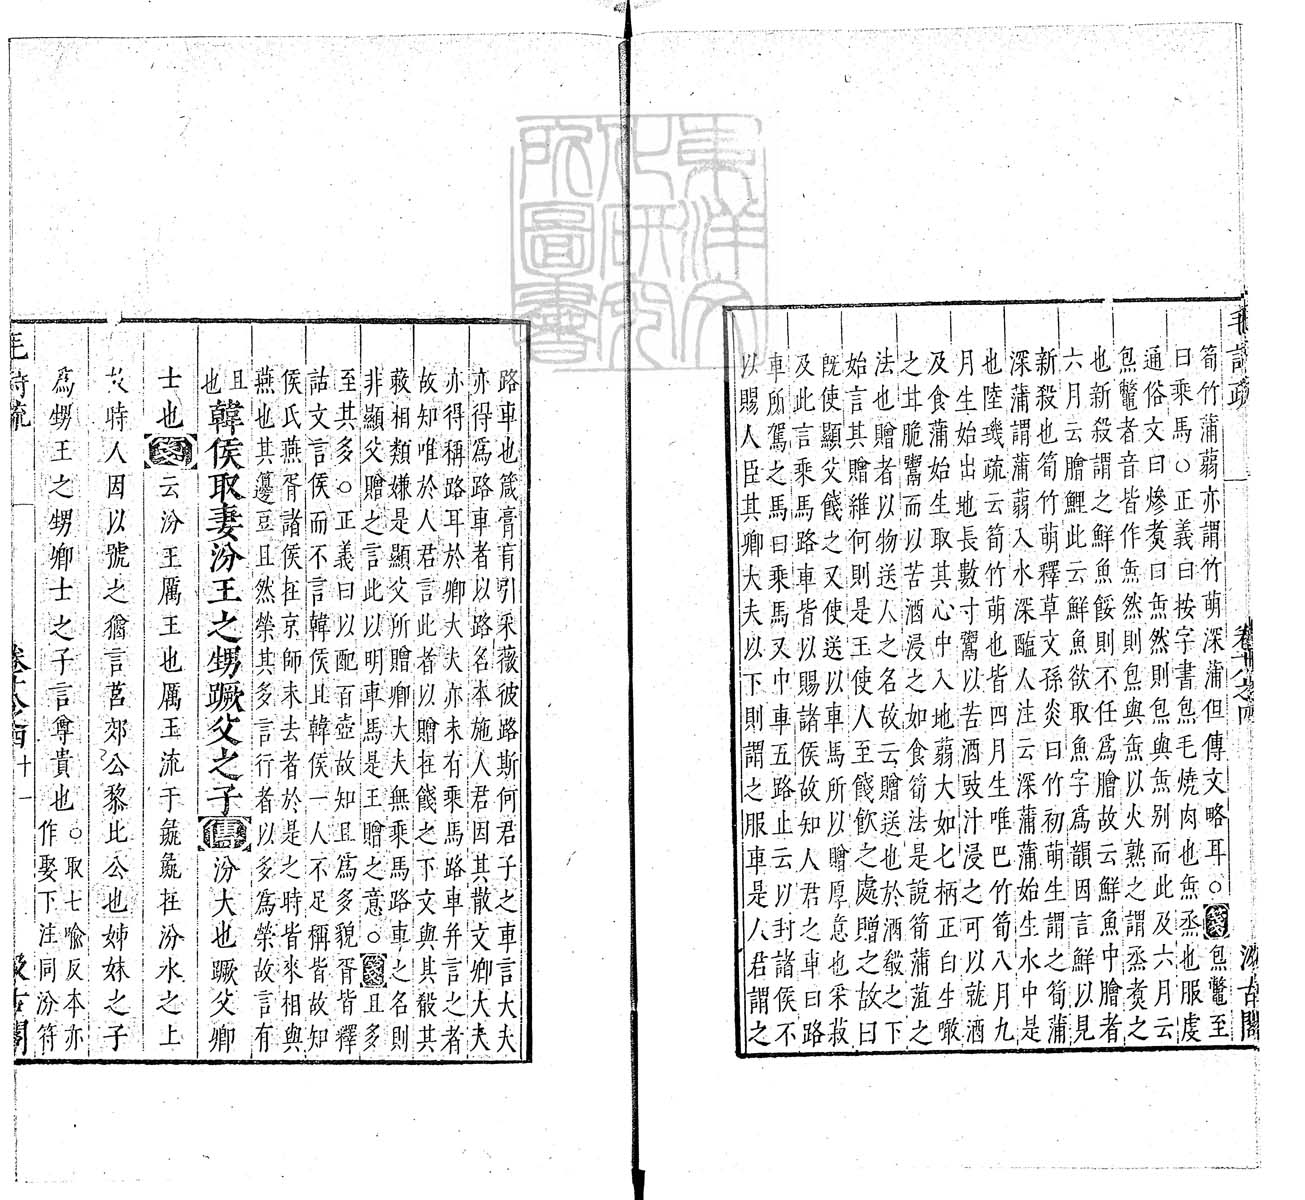 毛詩疏
卷十八之四
汲古閣
筍竹蒲蒻亦謂竹萌深蒲但傳文略耳○箋炰鼈至
曰乘馬○正義曰按字書炰毛燒肉也缹烝也服虔
通俗文曰燥煑曰缹然則炰與缹别而此及六月云
炰鼈者音皆作缹然則炰與缹以火熟之謂烝煑之
也新殺謂之鮮魚餒則不任爲膾故云鮮魚中膾者
六月云膾鯉此云鮮魚欲取魚字爲韻因言鮮以見
新殺也筍竹萌釋草文孫炎曰竹初萌生謂之筍蒲
深蒲謂蒲蒻入水深醢人注云深蒲蒲始生水中是
也陸璣疏云筍竹萌也皆四月生唯巴竹筍八月九
月生始出地長數寸鬻以苦酒豉汁浸之可以就酒
及食蒲始生取其心中入地蒻大如匕柄正白生噉
之甘脆鬻而以苦酒浸之如食筍法是説筍蒲菹之
法也贈者以物送人之名故云贈送也於酒殽之下
始言其贈維何則是王使人至餞飲之處贈之故曰
既使顯父餞之又使送以車馬所以贈厚意也采菽
及此言乘馬路車皆以賜諸侯故知人君之車曰路
車所駕之馬曰乘馬又中車五路止云以封諸侯不
以賜人臣其卿大夫以下則謂之服車是人君謂之
路車也箴膏肓引采薇彼路斯何君子之車言大夫
亦得爲路車者以路名本施人君因其散文卿大夫
亦得稱路耳於卿大夫亦未有乘馬路車并言之者
故知唯於人君言此者以贈在餞之下文與其殽其
蔌相類嫌是顯父所贈卿大夫無乘馬路車之名則
非顯父贈之言此以明車馬是王贈之意○箋且多
至其多○正義曰以配百壺故知且爲多貌胥皆釋
詁文言侯而不言韓侯且韓侯一人不足稱皆故知
侯氏燕胥諸侯在京師未去者於是之時皆來相與
燕也其籩豆且然榮其多言行者以多爲榮故言有
且
也韓侯取妻汾王之甥蹶父之子傳汾大也蹶父卿
士也箋云汾王厲王也厲王流于彘彘在汾水之上
故時人因以號之猶言莒郊公黎比公也姊妹之子
爲甥王之甥卿士之子言尊貴也○取七喻反本亦
作娶下注同汾符
毛詩疏
卷十八之四
十一
汲古閣
東洋文
化研究
所圖書